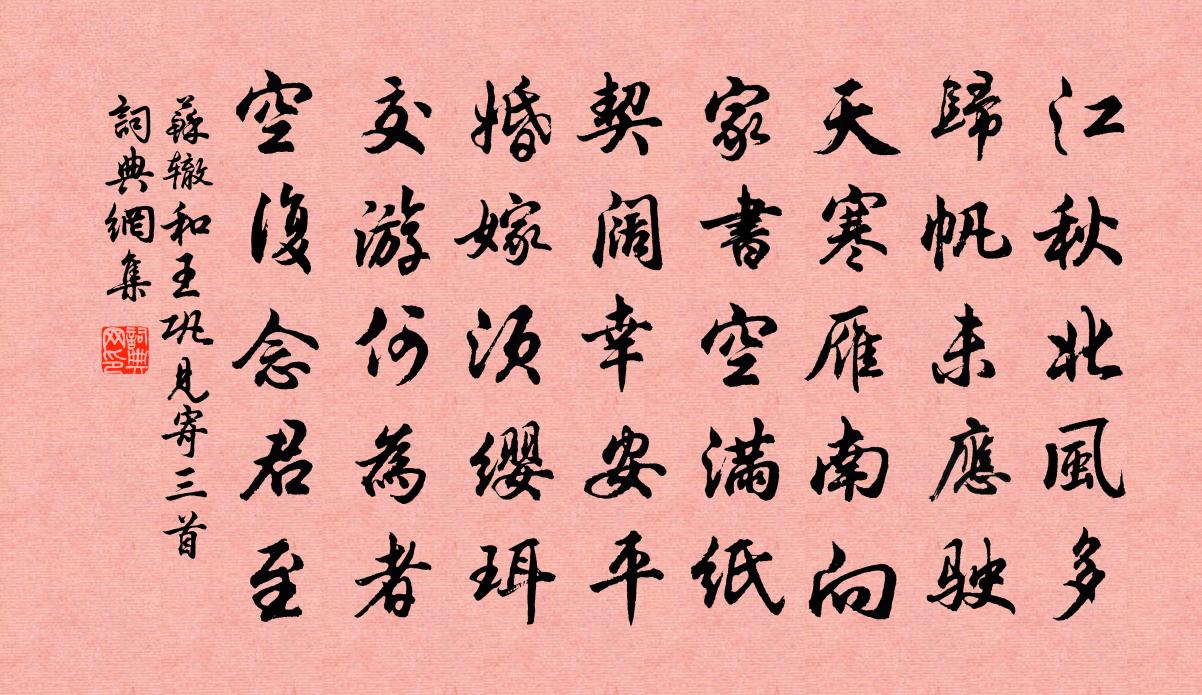 江秋北風多
歸帆未應駛
天寒雁南向
家書空滿紙
契闊幸安平
婚嫁須纓珥
交游何為者
空復念君至
蘇辙和王巩見寄三首
詞典網集
詞典网印